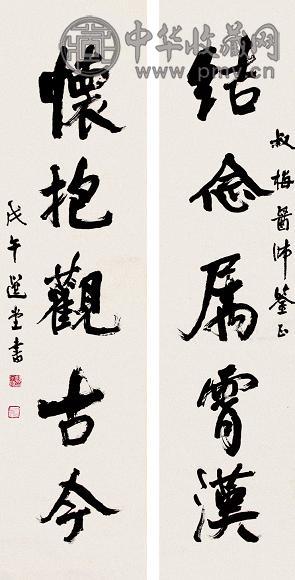 中华收藏网
叔梅醫師鑒正
結念属霄漢
懷抱觀古今
戊午選堂書